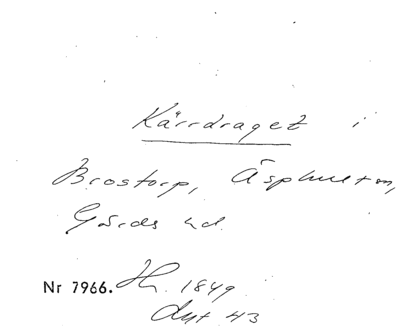 Kärrdraget i
Brostorp, Äsphult sn,
Gärds hd.
Nr 7966. H. 1849.
Ant. 43